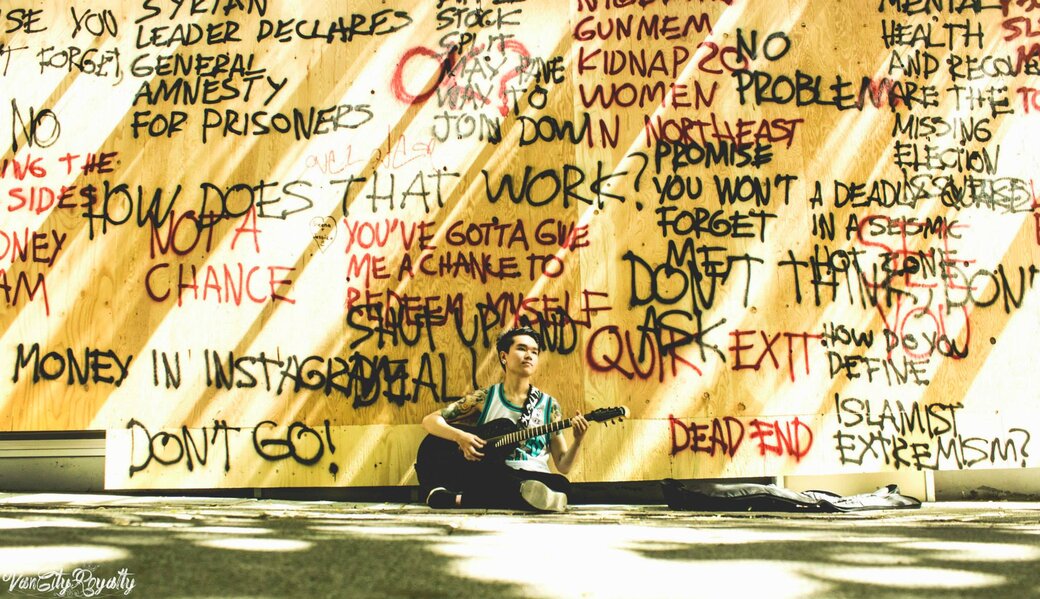 SE YOU
T FORGET,
NO
ING THE
SIDES
ONEY
AM
SYRIAN
LEADER DECLARES
GENERAL
AMNESTY
FOR PRISONERS
STOCK
SPLIT
MAY PAVE
WAY TO
JOIN DOW
OK?
GUNMEM
KIDNAP 20
WOMEN
IN NORTHEAST
NO
PROBLEM
MENTAL
HEALTH
AND RECOVE
ARE THE
MISSING
ELECTION
ISSUE
HOW DOES THAT WORK?
NOT A
CHANCE
YOU'VE GOTTA GIVE
ME A CHANCE TO
REDEEM MYSELF
PROMISE
YOU WON'T
FORGET
ME
A DEADLY
IN A SEISMIC
HOT ZONE
SEE
YOU
DON'T THINK, DON'
ASK
SHUT UP AND
DEAL
QUIRK EXIT
HOW DO YOU
DEFINE
ISLAMIST
EXTREMISM?
MONEY IN INSTAGRAM
DON'T GO!
DEAD END
VanCityRoyalty